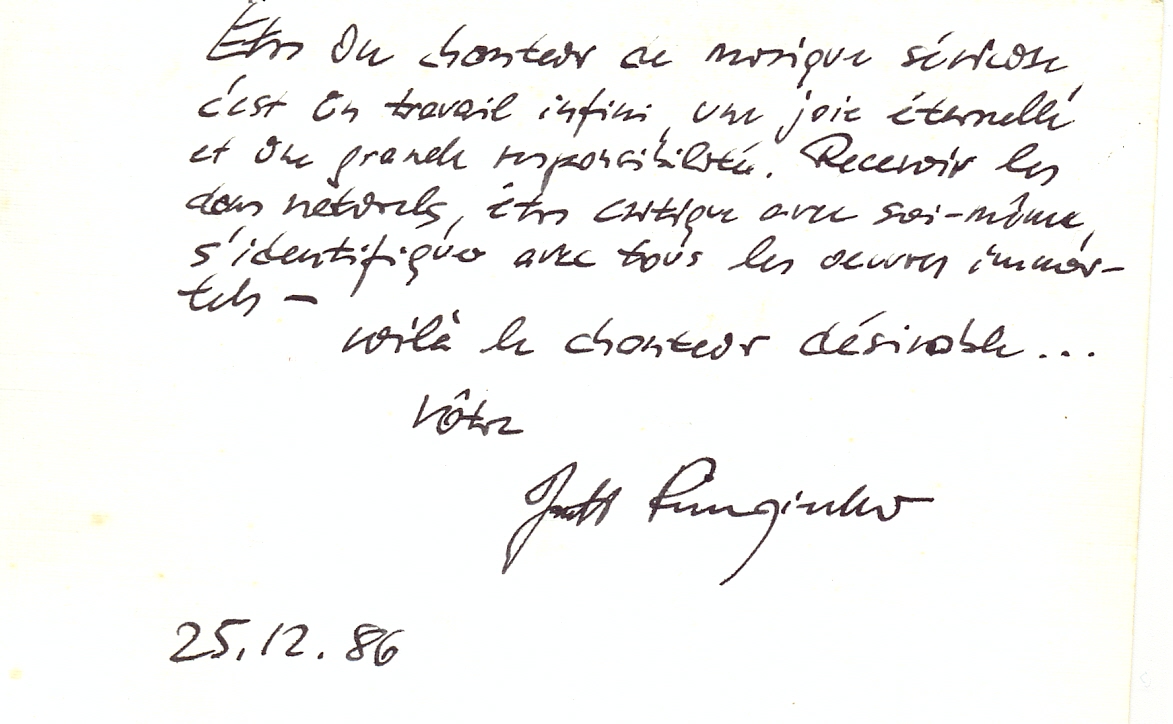 Être un chanteur de musique sérieuse,
c'est un travail infini, une joie éternelle
et une grande responsibilité. Recevoir les
dons naturels, être critique avec soi-même,
s'identifiquer avec tous les oeuvres immor-
tels –
voilà le chanteur désirable...
Vôtre
25.12.86